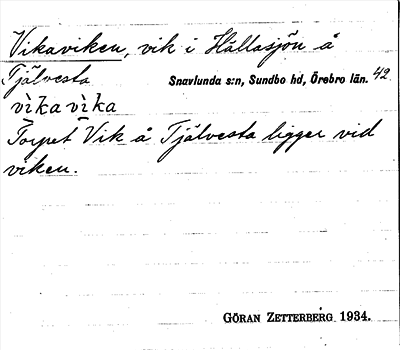 Vikaviken, vik i Hållasjön å
Tjälvesta Snavlunda s:n, Sundbo hd, Örebro län. 42
vìkavìka
Torpet Vik å Tjälvesta ligger vid
viken.
GÖRAN ZETTERBERG 1934.